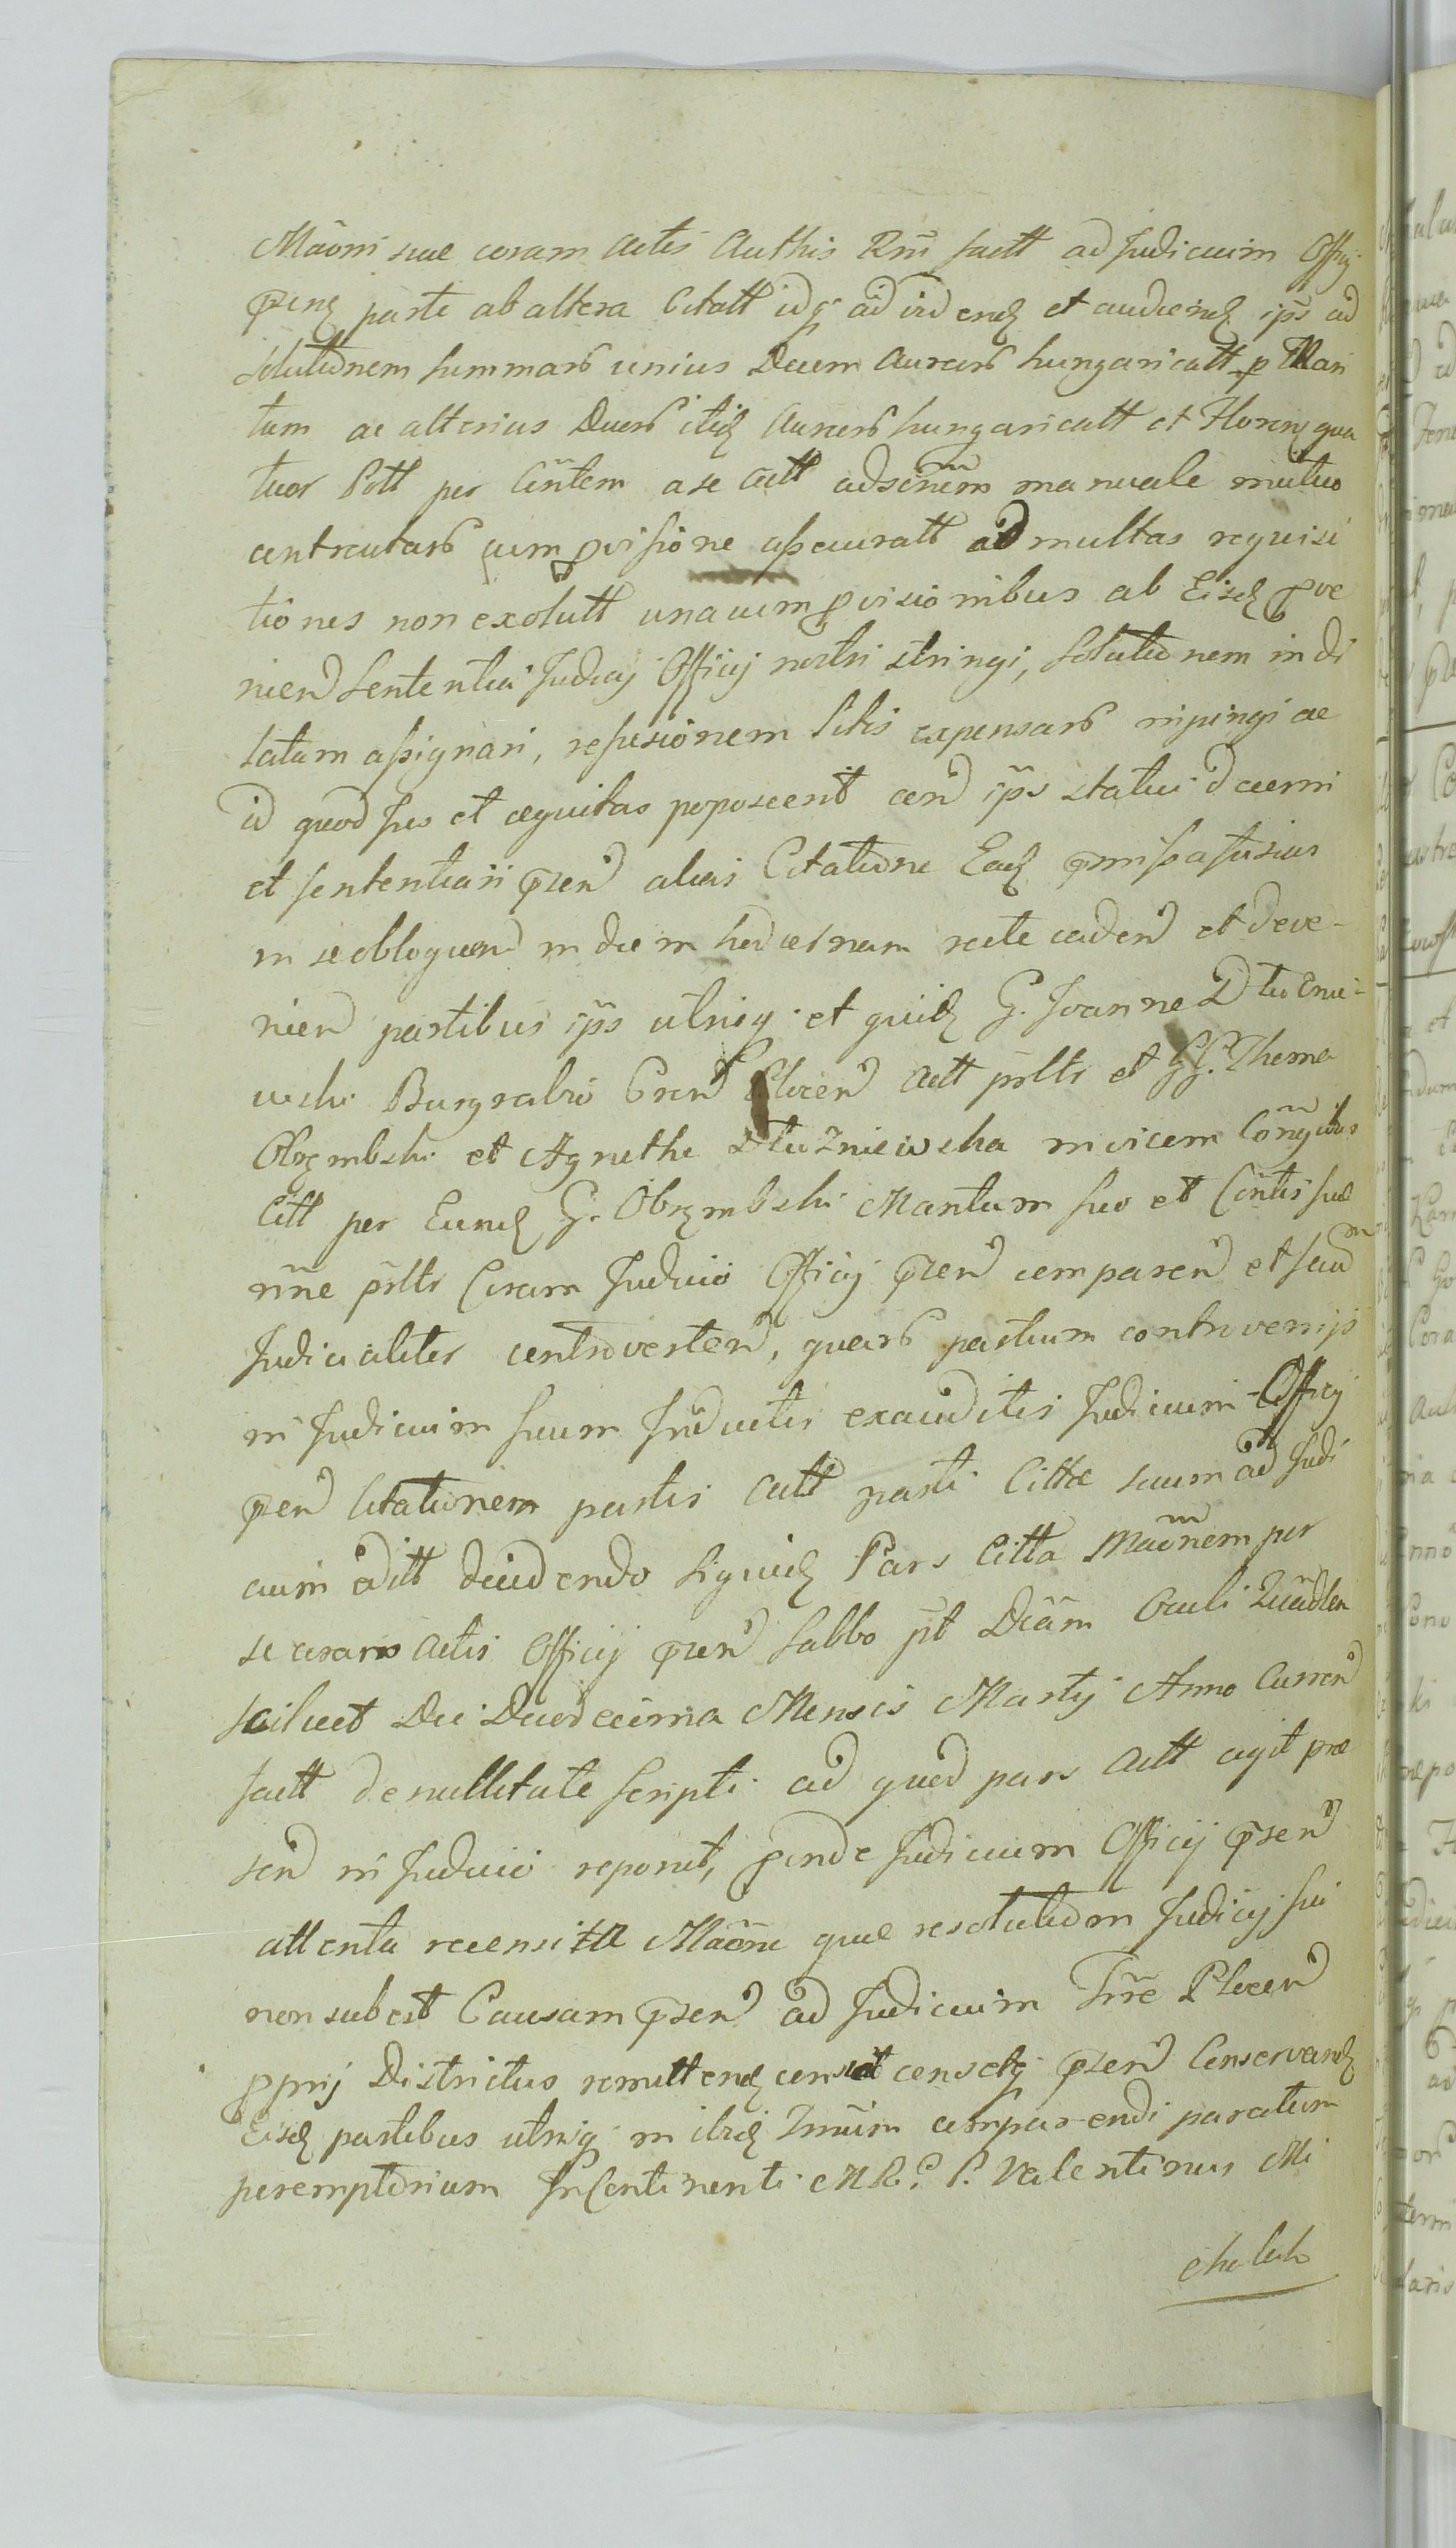 Maõni suae coram actis Authis Rm̃ factt ad Judicium Officij
p̃zenʒ parte ab altera Citatt idq; ad videndʒ et audiendʒ ip̃s ad
solutionem summarũ unius Decem Aureorũ hungaricatt p Mari
tum ac alterius Duorũ itidʒ Aureorũ hungaricatt et Florenʒ qua
tuor Poll per Citñtem a se Actt ad scñem manuale mutuo
contractarũ cum pvisione assecuratt ad multas requisi
tiones non exolutt una cum pvisionibus ab Eisdʒ pve
nien Sententia Judicij Officij nostri stringi, solutionem in di
latam assignari, refusionem litis expensarũ inpingi ac
id quod Jus et aequitas poposcerit cen ip̃s statui decerni
et sententiari p̃zen aliis Citatione Eadʒ p̃missa fusius
in se obloquen in diem hodiernam recte caden et deve-
nien partibus ip̃s utrisq; et quidʒ G. Joanne Dłużnie-
wski Burgrabio Cren Plocen Actt p̃slti et GG. Thoma
Obrembski et Agnethe Dłużniewska invicem Coñgibus
Citt per Eundʒ G. Obrembski Maritum suo et Coñtis suae
nñe p̃slti Coram Judicio Officij p̃zen comparen et secum
Judicialiter controverten, quarũ partium controversijs
in Judicium suum Inductis exauditis Judicium Officij
p̃zen Citationem partis Actt parti Cittae suum ad Judi
cium editt decidendo siquidʒ Pars Citta Maõnem per
se coram Actis Officij p̃zen Sabbo p̃t Dõcam Oculi Quadlem
scilicet Die Duodecima Mensis Martij Anno Curren
factt de nullitate scripti ad quod pars Actt agit prae
sen in Judicio reponit, pinde Judicium Officij p̃sen
attenta recensita Maõne quae resolutiom Judicij sui
non subest Causam p̃sen ad Judicium Trr̃e Plocen
pprij Districtus remittendʒ censuit censetq; p̃zen Conservandʒ
Eisdʒ partibus utrisq; in ibidʒ Tmium comparendi paratum
peremptorium In Continenti M R. P. Valentinus Mi
chalski